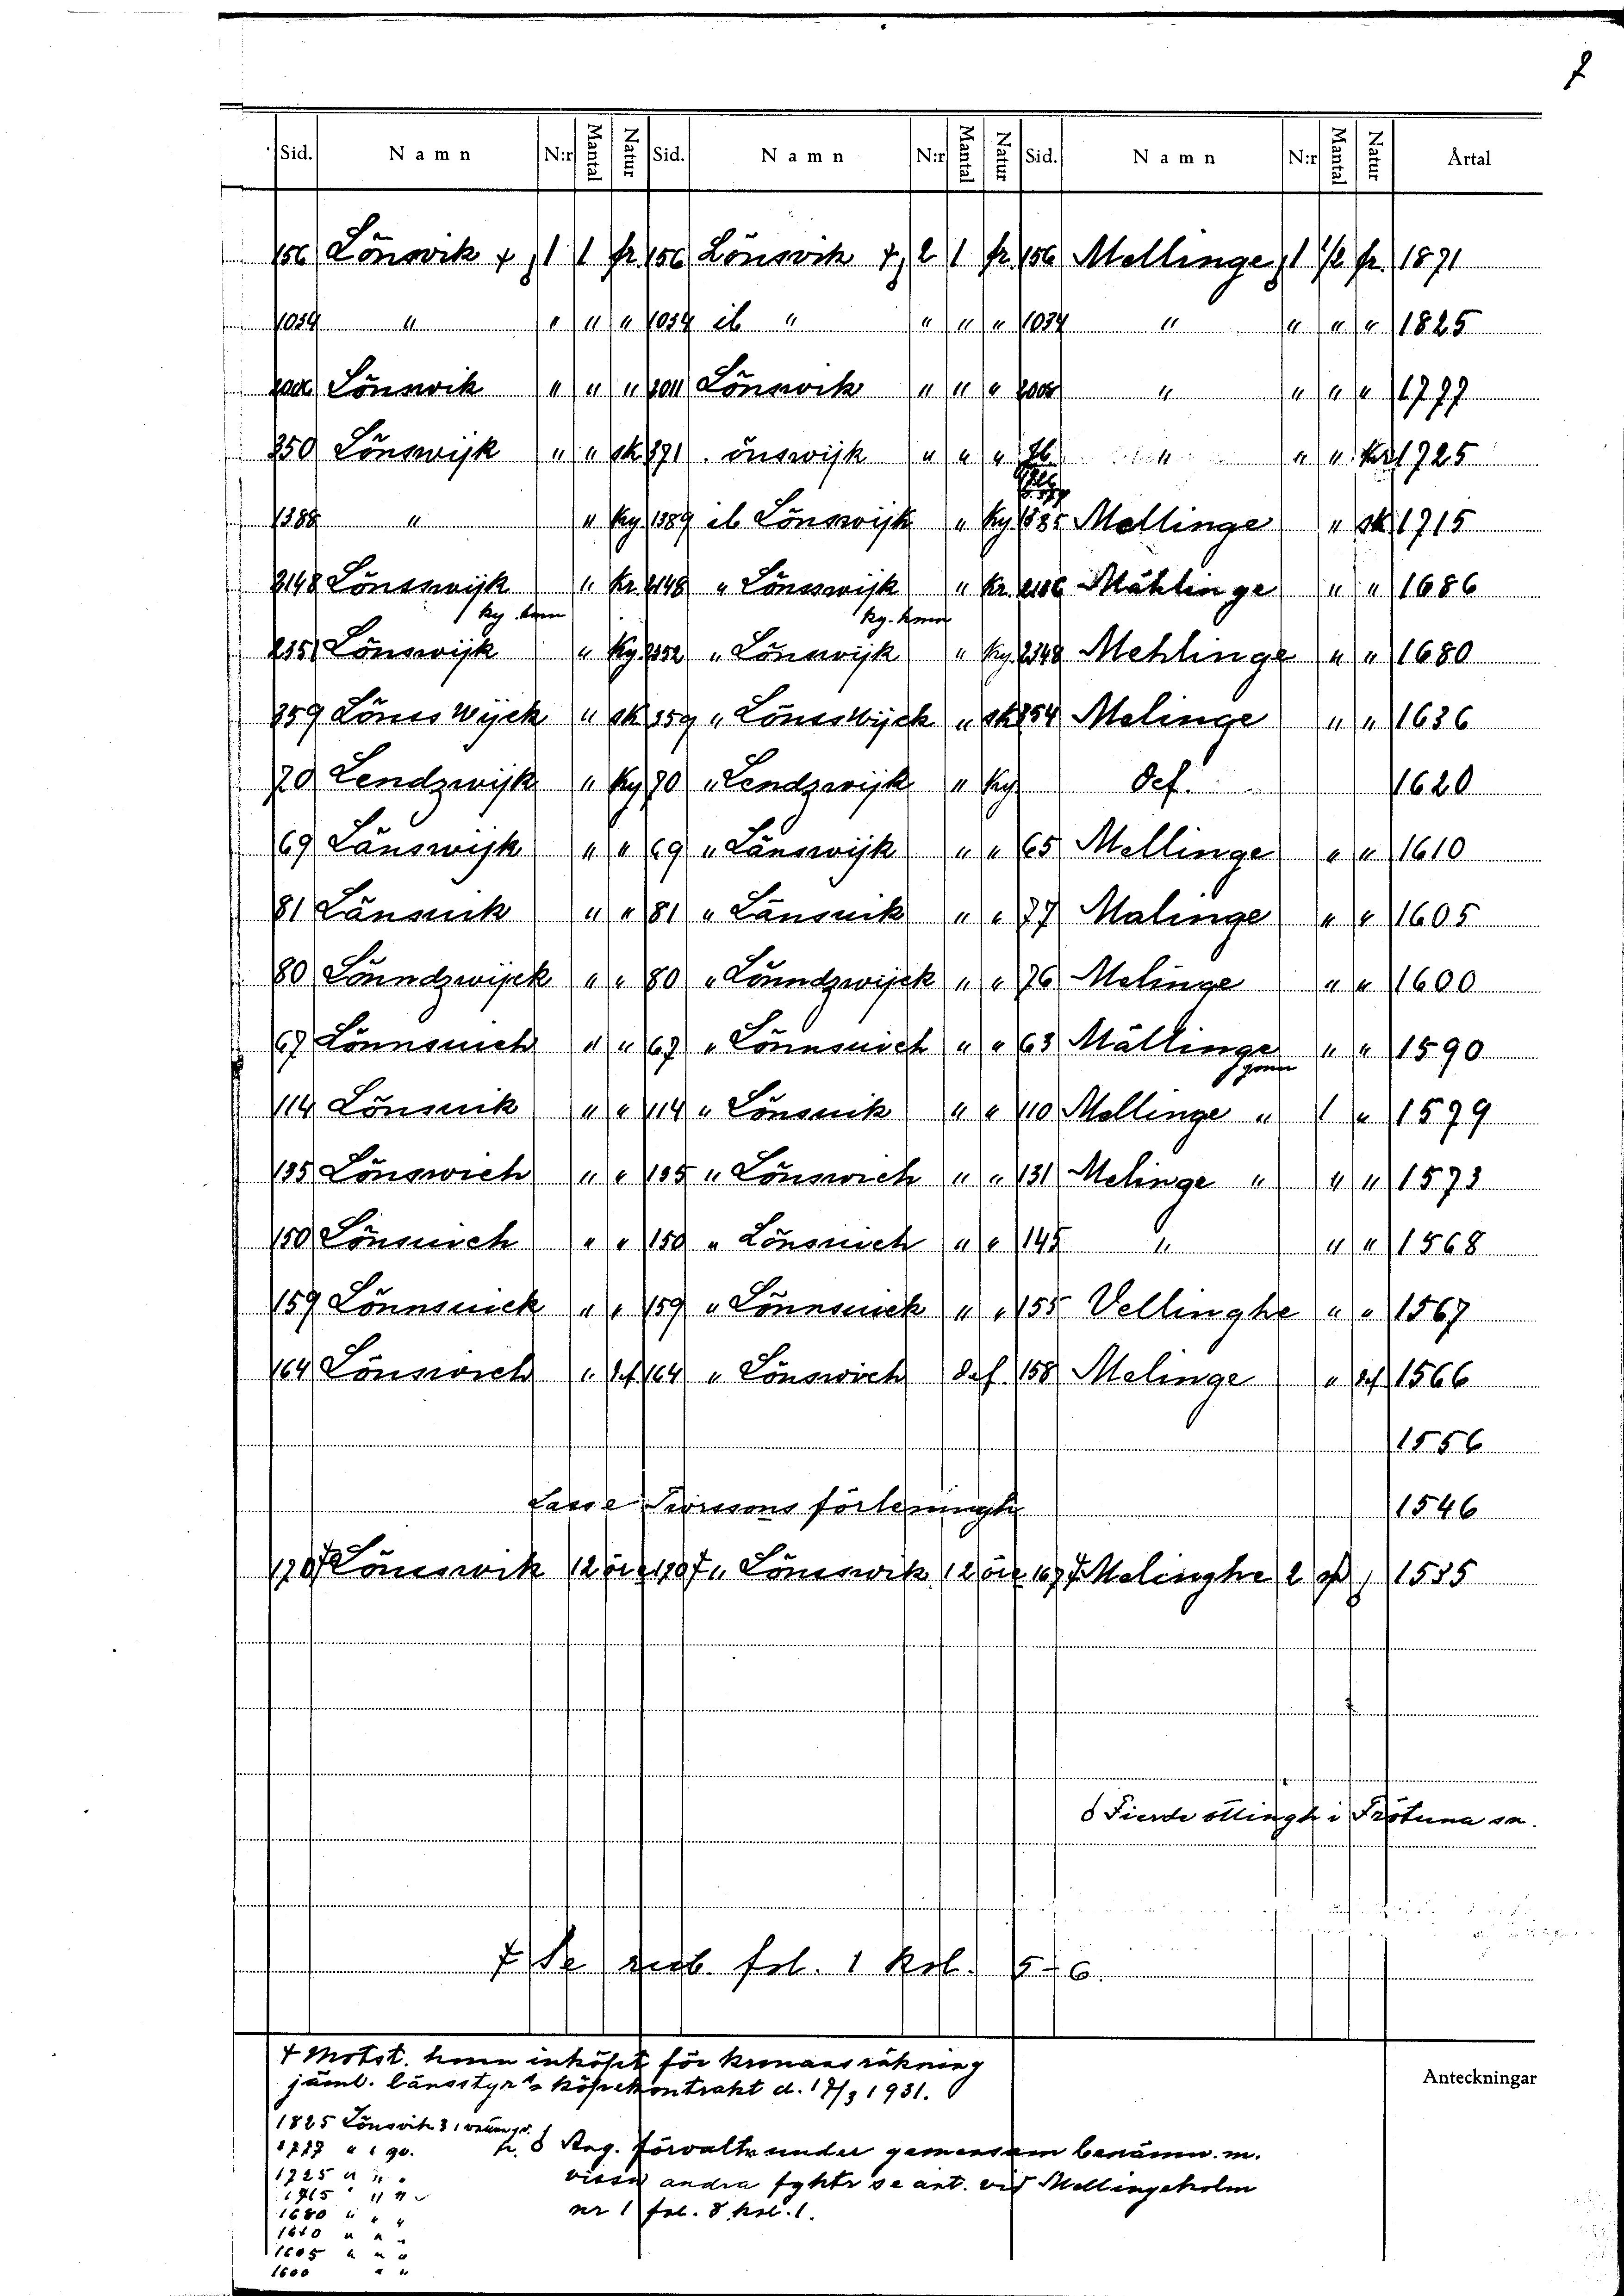 7
Sid. Namn N:r Mantal Natur Sid. Namn N:r Mantal Natur Sid. Namn N:r Mantal Natur Årtal
156 Lönsvik + 1 1 fr. 156 Lönsvik + 2 1 fr. 156 Mellinge 1 1/2 fr. 1871
1034 " " " " 1034 ib " " " " 1034 " " " " 1825
Lönswik " " " 2011 Lönswik " " " 2005 " " " " 1777
350 Lönswijk " " sk 371 . önswijk " " " " " " kr 1725
1388 " " kg 1389 ib Lönswijk " kg 1385 Mellinge " sk 1715
2148 Lönsswijk " kr. 2148 " Lönsswijk " kr. 2146 Mählinge " " 1686
kg. hmn kg. hmn
2351 Lönswijk " kg. 2352 " Lönswijk " kg. 2348 Mehlinge " " 1680
359 Lönss Wijck " sk 359 " LönssWijck " sk 354 Melinge " " 1636
70 Lendzwijk " kg 70 " Lendzwijk " kg Def. 1620
69 Länswijk " " 69 " Länswijk " " 65 Mellinge " " 1610
81 Länsuik " " 81 " Länsuik " " 77 Malinge " " 1605
80 Lönndzwijck " " 80 " Lönndzwijck " " 76 Melinge " " 1600
67 Lönnsuich " " 67 " Lönnsuich " " 63 Mällinge " " 1590
114 Lönsuik " " 114 " Lönsuik " " 110 Mellinge " 1 " 1579
135 Lönswich " " 135 " Lönswich " " 131 Melinge " " " 1573
150 Lönsuich " " 150 " Lönsuich " " 145 " " " 1568
159 Lönnsuick " " 159 " Lönnsuick " " 155 Vellinghe " " 1567
164 Lönswich " def 164 " Lönswich def. 158 Melinge " def 1566
1556
Lasse förleningh 1546
170 Lönsswik 12 öre 170 " Lönsswik 12 öre 167 Melinghe 2 1535
Fierde ottingh i Frötuna sn.
+ Se fol. 1 kol. 5-6.
+ Motst. hmn inköpt för kronans räkning
jäml. länsstyr:s köpekontrakt d. 17/3 1931.
Anteckningar
1825 Lönsvik 3
1777 " "
Aug. förvaltn under gemensam benämn. m.
1725 " " "
vissa andra fghtr se ant. vid Mellingeholm
1715 " " "
1680 " " "
nr 1 fol. 8 kol. 1.
1610 " " "
1605 " " "
1600 " "